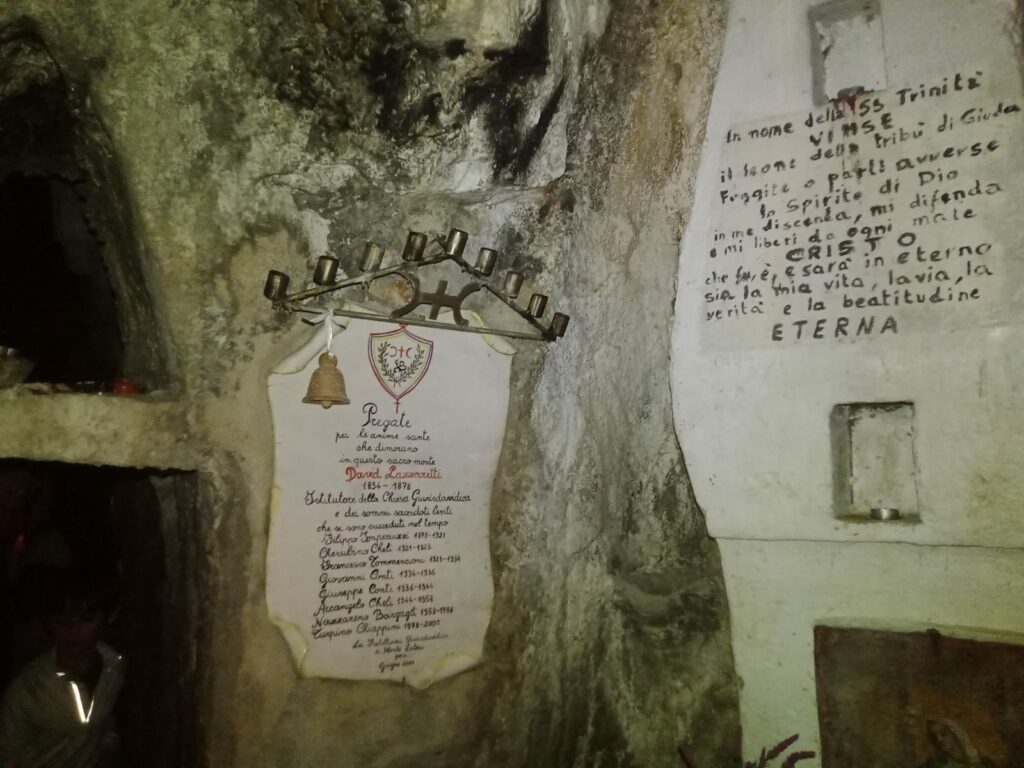 Pregate
per le anime sante
che dimorano
in questo sacro monte
David Lazzaretti
1834 - 1878
Istitutore della Chiesa Giurisdavidica
e dei sommi sacerdoti
che si sono succeduti nel tempo
Filippo Imperiuzzi
Cherubino Cheli 1921-1923
Francesco Tommencioni 1923-1934
Giovanni Conti 1934-1936
Giuseppe Conti 1936-1944
Arcangelo Cheli 1944-1958
Nazzareno Bargagli 1958-1998
Turpino Chiappini 1998-2002
di Monte
In nome della SS Trinità
VINSE
il leone della tribù di Giuda
Fuggite o parti avverse
lo Spirito di Dio
in me discenda, mi difenda
e mi liberi da ogni male
CRISTO
che fu, è, e sarà in eterno
sia la mia vita, la via, la
verità e la beatitudine
ETERNA